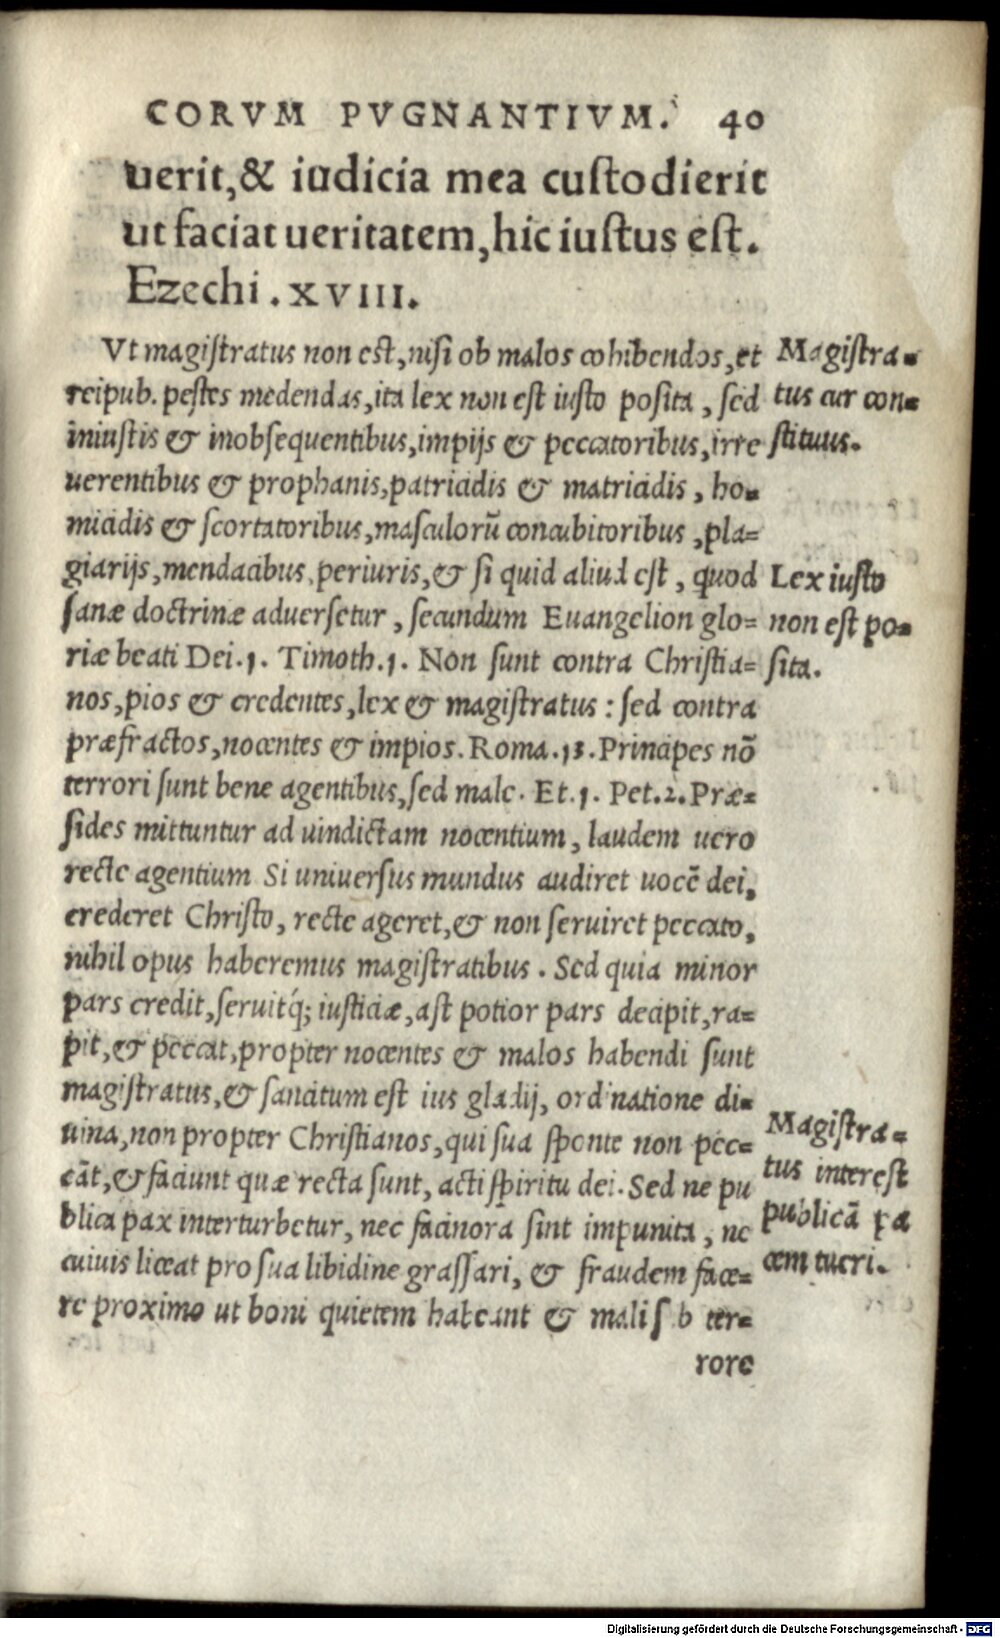 CORVM PVGNANTIVM. 40
uerit,& iudicia mea custodierit
ut faciat ueritatem,hic iustus est.
Ezechi.XVIII.
Vt magistratus non est,nisi ob malos cohibendos,et
reipub. pestes medendas,ita lex non est iusto posita, sed
iniustis & inobsequentibus,impijs & peccatoribus,irre
uerentibus & prophanis,patricidis & matricidis, ho-
micidis & scortatoribus,masculorũ concubitoribus,pla-
giarijs,mendacibus,periuris,& si quid aliud est, quod
sanæ doctrinæ aduersetur, secundum Euangelion glo-
riæ beati Dei.1. Timoth.1. Non sunt contra Christia-
nos,pios & credentes,lex & magistratus: sed contra
præfractos,nocentes & impios. Roma.13.Principes nõ
terrori sunt bene agentibus,sed male. Et.1. Pet.2.Præ-
sides mittuntur ad uindictam nocentium, laudem uero
recte agentium Si uniuersus mundus audiret uocẽ dei,
crederet Christo, recte ageret,& non seruiret peccato,
nihil opus haberemus magistratibus. Sed quia minor
pars credit,seruitq́; iusticiæ,ast potior pars decipit,ra-
pit,& peccat,propter nocentes & malos habendi sunt
magistratus,& sancitum est ius gladij, ordinatione di-
uina,non propter Christianos,qui sua sponte non pec-
cãt,& faciunt quæ recta sunt, acti spiritu dei. Sed ne pu
blica pax interturbetur, nec facinora sint impunita, ne
cuiuis liceat pro sua libidine grassari, & fraudem face-
re proximo ut boni quietem habeant & mali s b ter-
rore
Magistra-
tus cur con-
stitutus.
Lex iusto
non est po-
sita.
Magistra-
tus interest
publicã pa
cem tueri.
Digitalisierung gefördert durch die Deutsche Forschungsgemeinschaft - DFG